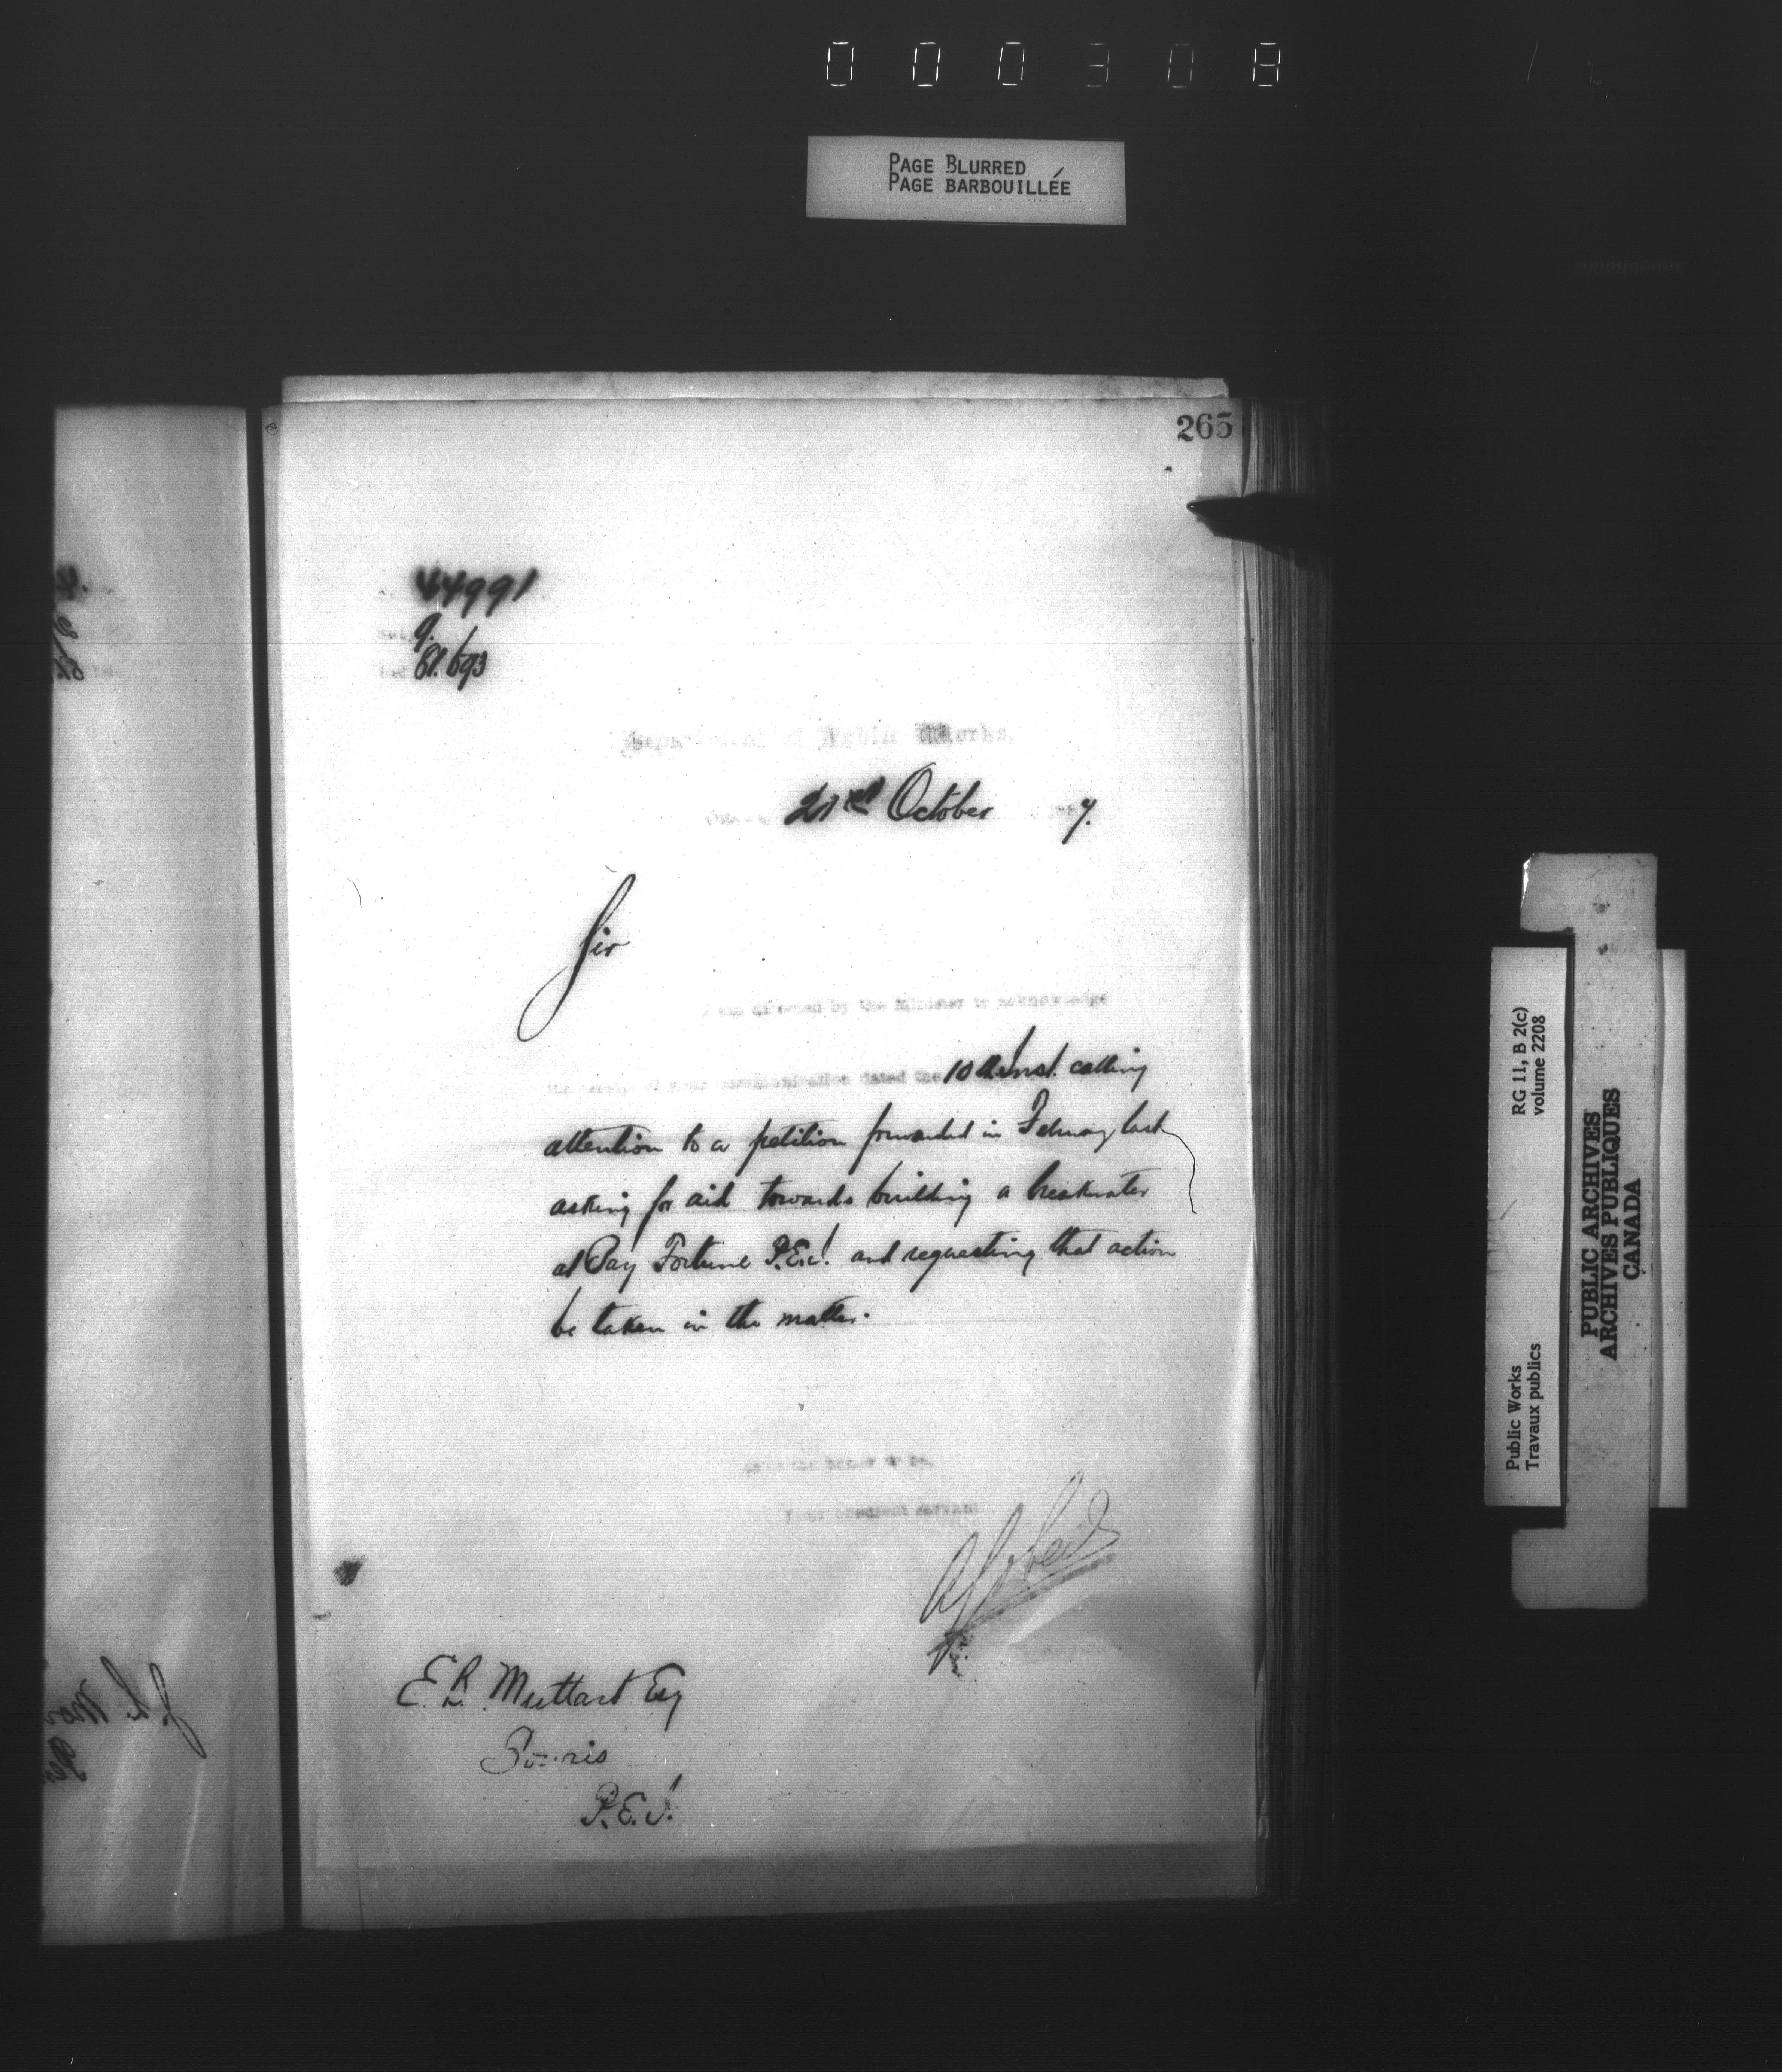 000308
PAGE BLURRED
PAGE BARBOUILLÉE
265
44991
9.
81.693
Department of Public Works,
21st October 7.
Sir
I am directed by the Minister to acknowledge
the receipt of your communication dated the 10th Inst. calling
attention to a petition forwarded in February last
asking for aid towards building a breakwater
at Bay Fortune P.E.I. and requesting that action
be taken in the matter.
the honor to be,
Your obedient servant
E. R. Muttart Esq
Souris
P.E.I.
RG 11, B 2(c)
volume 2208
Public Works
Travaux publics
PUBLIC ARCHIVES
ARCHIVES PUBLIQUES
CANADA